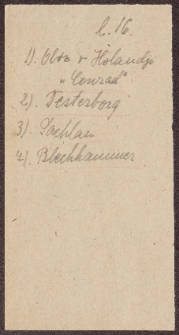 l. 16.
1). Obóz v Holandji
"Conrad"
2). Testerborg
3). Dachau
4). Blechhammer